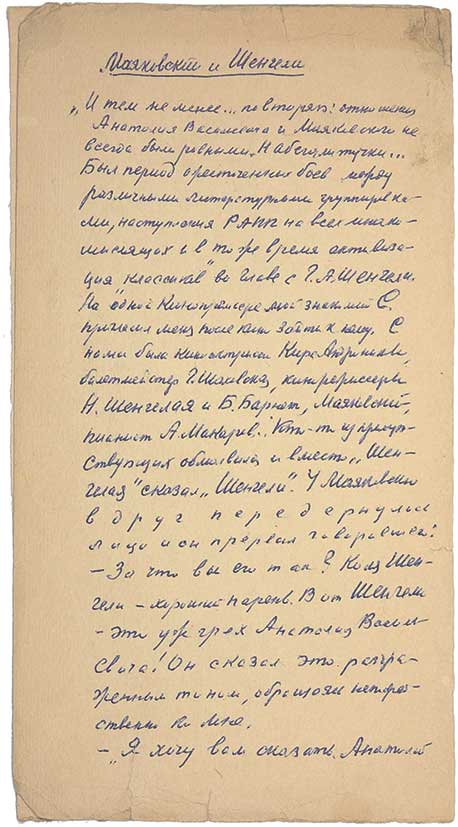 Маяковский и Шенгели
„И тем не менее... повторяю: отношения
Анатолия Васильевича и Маяковского не
всегда были ровными. Набегали тучки...
Был период ожесточенных боев между
различными литературными группировка-
ми, наступления РАПП на всех инако-
мыслящих и в то же время активиза-
ция „классиков" во главе с Г. А. Шенгели.
На одной кинопремьере мой знакомый С.
пригласил меня после кино зайти к нему. С
нами были киноактриса Кира Андроникова,
балетмейстер Г. Шаховская, кинорежиссеры
Н. Шенгелая и Б. Барнет, Маяковский,
пианист А. Макаров. Кто-то из присут-
ствующих обмолвился и вместо „Шен-
гелая" сказал „Шенгели". У Маяковского
вдруг передернулось
лицо и он прервал говорившего:
– За что вы его так? Коля Шен-
гели – хороший парень. Вот Шенгели
– это уж грех Анатолия Василь-
евича! Он сказал это раздра-
женным тоном, обращаясь непосред-
ственно ко мне.
– „Я хочу вам сказать. Анатолий